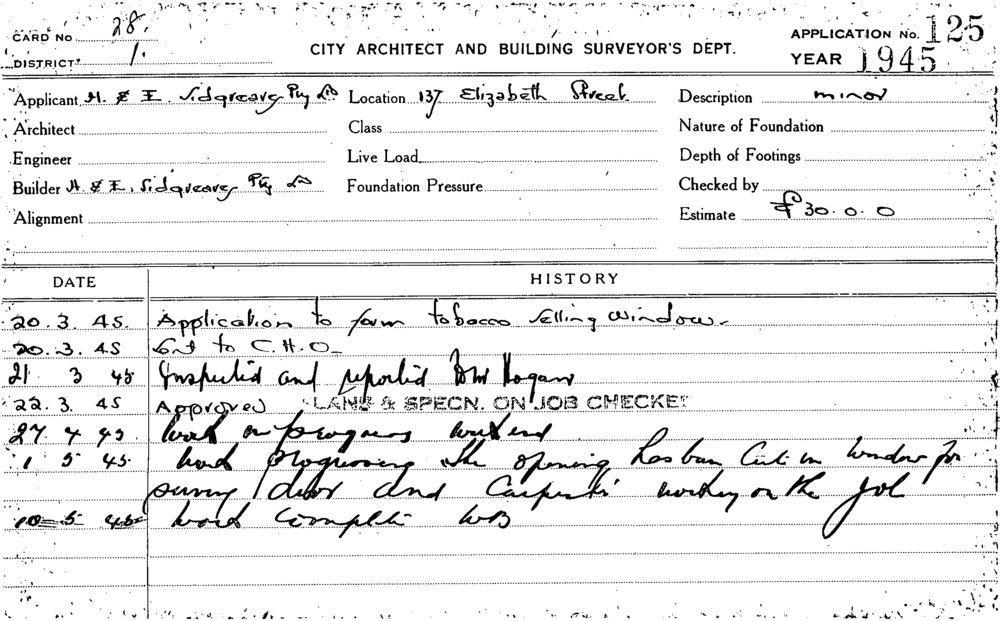 CARD No 28.
DISTRICT 1.
CITY ARCHITECT AND BUILDING SURVEYOR'S DEPT.
APPLICATION No. 125
YEAR 1945
Applicant H. & E. Sidgreaves Pty Ld Location 137 Elizabeth Street Description minor
Architect Class Nature of Foundation
Engineer Live Load Depth of Footings
Builder H & E. Sidgreaves Pty Ld Foundation Pressure Checked by
Alignment Estimate £30.0.0
DATE HISTORY
20.3.45. Application to form tobacco selling window.
20.3.45 Sent to C.H.O.
21 3 45 Inspected and reported Hogan
22.3.45 Approved PLANS & SPECN. ON JOB CHECKED
27 4 45 Work in progress
1 5 45 Work progressing the opening has been cut in window for
door and Carpenter working on the job
10 5 45 Work Complete WB